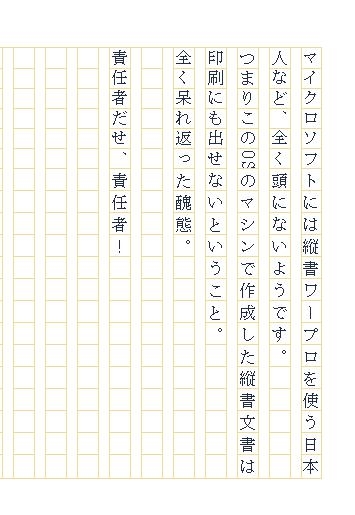 マイクロソフトには縦書ワープロを使う日本
人など、全く頭にないようです。
つまりこのOSのマシンで作成した縦書文書は
印刷にも出せないということ。
全く呆れ返った醜態。
責任者だせ、責任者！